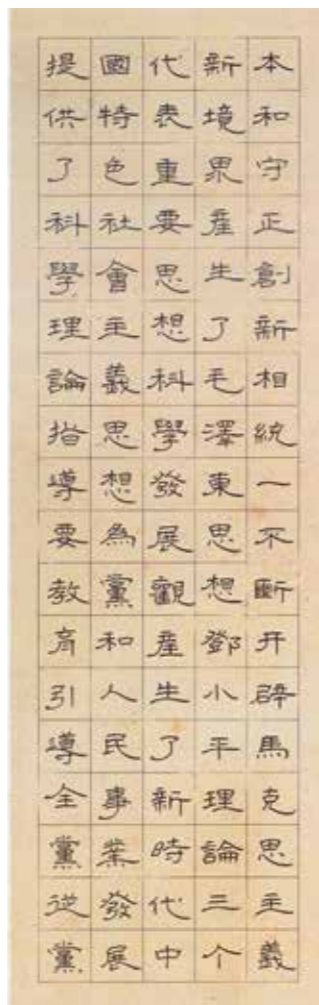 本和守正創新相統一不斷开辟馬克思主義
新境界產生了毛澤東思想鄧小平理論三个
代表重要思想科學發展觀產生了新時代中
國特色社會主義思想為黨和人民事業發展
提供了科學理論指導要教育引導全黨從黨